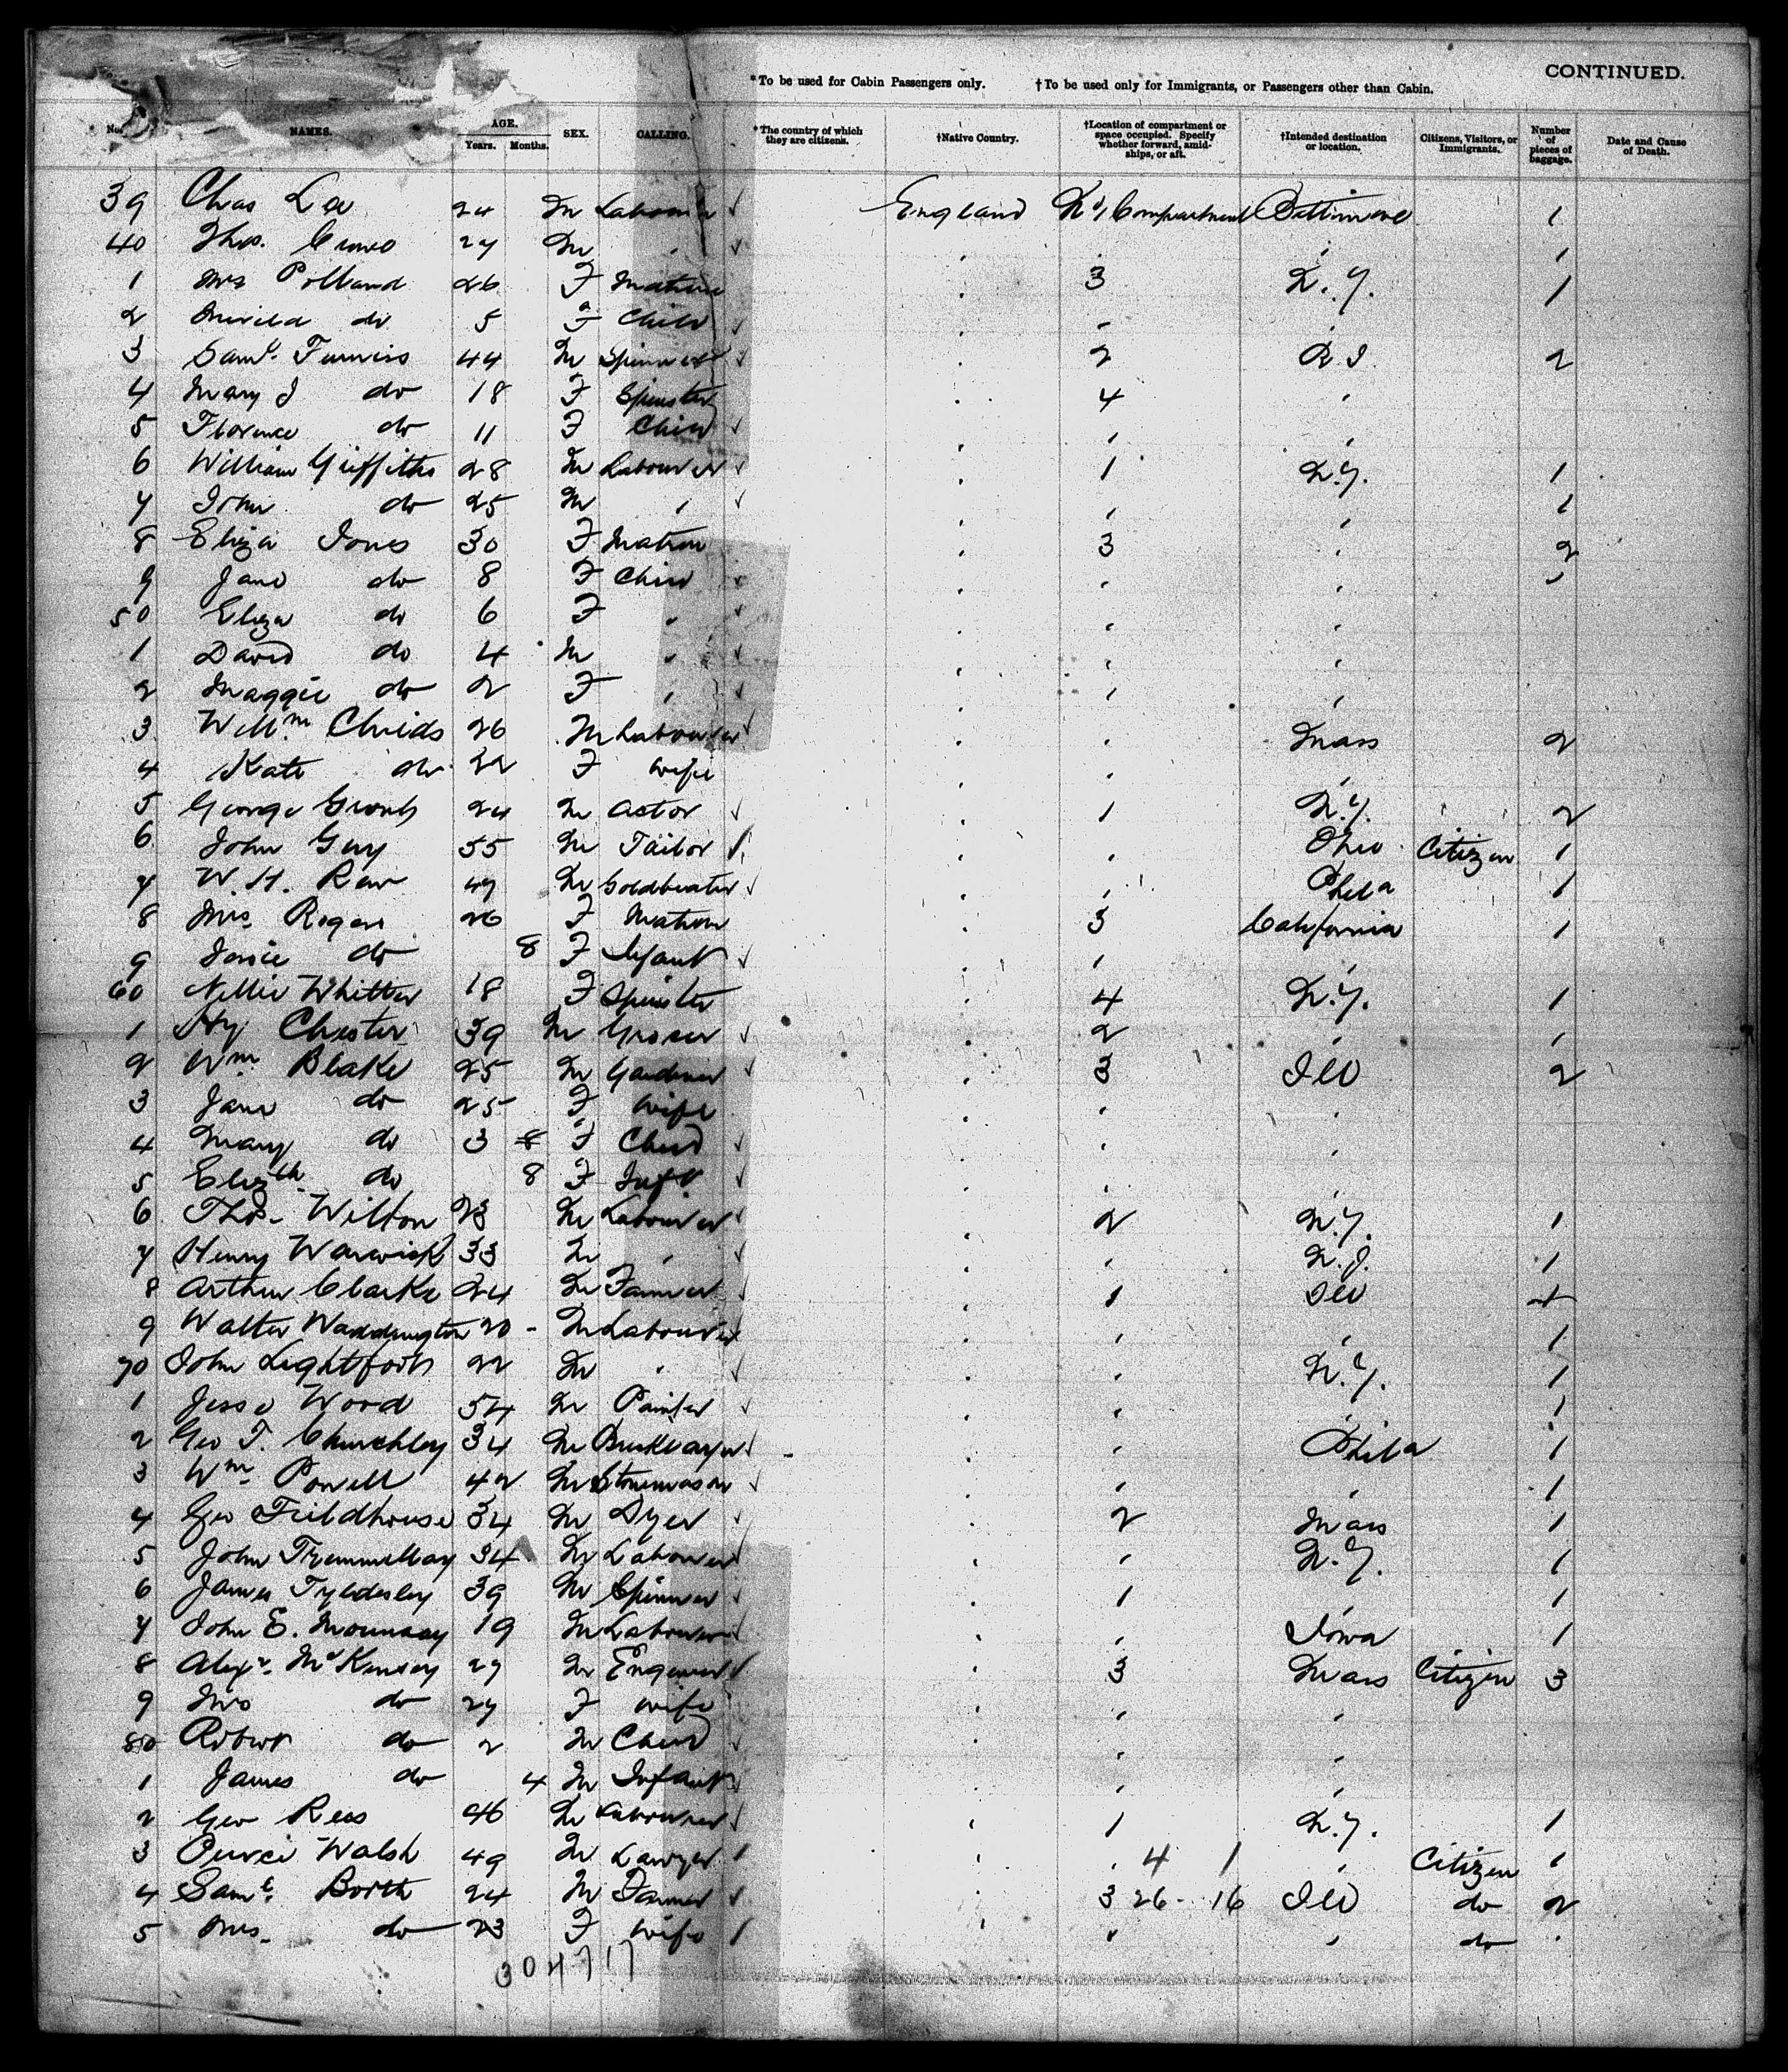 CONTINUED.
*To be used for Cabin Passengers only. †To be used only for Immigrants, or Passengers other than Cabin.
No. NAMES. AGE. Years. Months. SEX. CALLING. *The country of which they are citizens. †Native Country. †Location of compartment or space occupied. Specify whether forward, amidships, or aft. †Intended destination or location. Citizens, Visitors, or Immigrants. Number of pieces of baggage. Date and Cause of Death.
39 Chas Lee 24 M Labourer England No 1 Compartment Baltimore 1
40 Thos. Crowe 27 M " " " " 1
1 Mrs Polland 26 F Matron " 3 N.Y. 1
2 do 5 F Child " " "
3 Saml. Furniss 44 M Spinner " 2 R I 2
4 Mary J do 18 F Spinster " 4 "
5 Florence do 11 F Child " " "
6 William Griffiths 28 M Labourer " 1 N.Y. 1
7 John do 25 M " " " " 1
8 Eliza Jones 30 F Matron " 3 " 2
9 Jane do 8 F Child " " " "
50 Eliza do 6 F " " " "
1 David do 4 M " " " "
2 Maggie do 2 F " " " "
3 Willm Childs 26 M Labourer " " Mass 2
4 Kate do 22 F Wife " " "
5 George 24 M Actor " 1 N.Y. 2
6 John Guy 55 M Tailor " " Ohio Citizen 1
7 W. H. Raw 47 M Goldbeater " " Phila 1
8 Mrs. Rogers 26 F Matron " 3 California 1
9 do 8 F Infant " " "
60 Nellie Whitter 18 F Spinster " 4 N.Y. 1
1 Hy Chester 39 M Grocer " 2 " 1
2 Wm Blake 25 M Gardiner " 3 Ill 2
3 Jane do 25 F Wife " " "
4 Mary do 3 8 F Child " " "
5 Elizth do 8 F Inft " " "
6 Thos. Wilton 23 M Labourer " 2 N.Y. 1
7 Henry Warwick 33 M " " " N.J. 1
8 Arthur Clarke 24 M Farmer " 1 Ill 1
9 Walter Waddington 20 - M Labourer " " " 1
70 John Lightfoot 22 M " " " N.Y. 1
1 Jesse Wood 54 M Painter " " " 1
2 Geo T. Churchley 34 M Bricklayer " " Phila 1
3 Wm Powell 42 M Stonemason " " " 1
4 Geo Fieldhouse 34 M Dyer " 2 Mass 1
5 John 34 M Labourer " " N.Y. 1
6 James Tyldesley 39 M Spinner " 1 " 1
7 John E. Mounsay 19 M Labourer " " Iowa 1
8 Alexr. McKensey 27 M Engineer " 3 Mass Citizen 3
9 Mrs do 27 F Wife " " "
80 Robert do 2 M Child " " "
1 James do 4 M Infant " " "
2 Geo Rees 46 M Labourer " 1 N.Y. 1
3 Walsh 49 M Lawyer " " 4 1 " Citizen 1
4 Saml. Booth 24 M Farmer " 3 26 - 16 Ill do 2
5 Mrs. do 23 F Wife " " " do "
304717